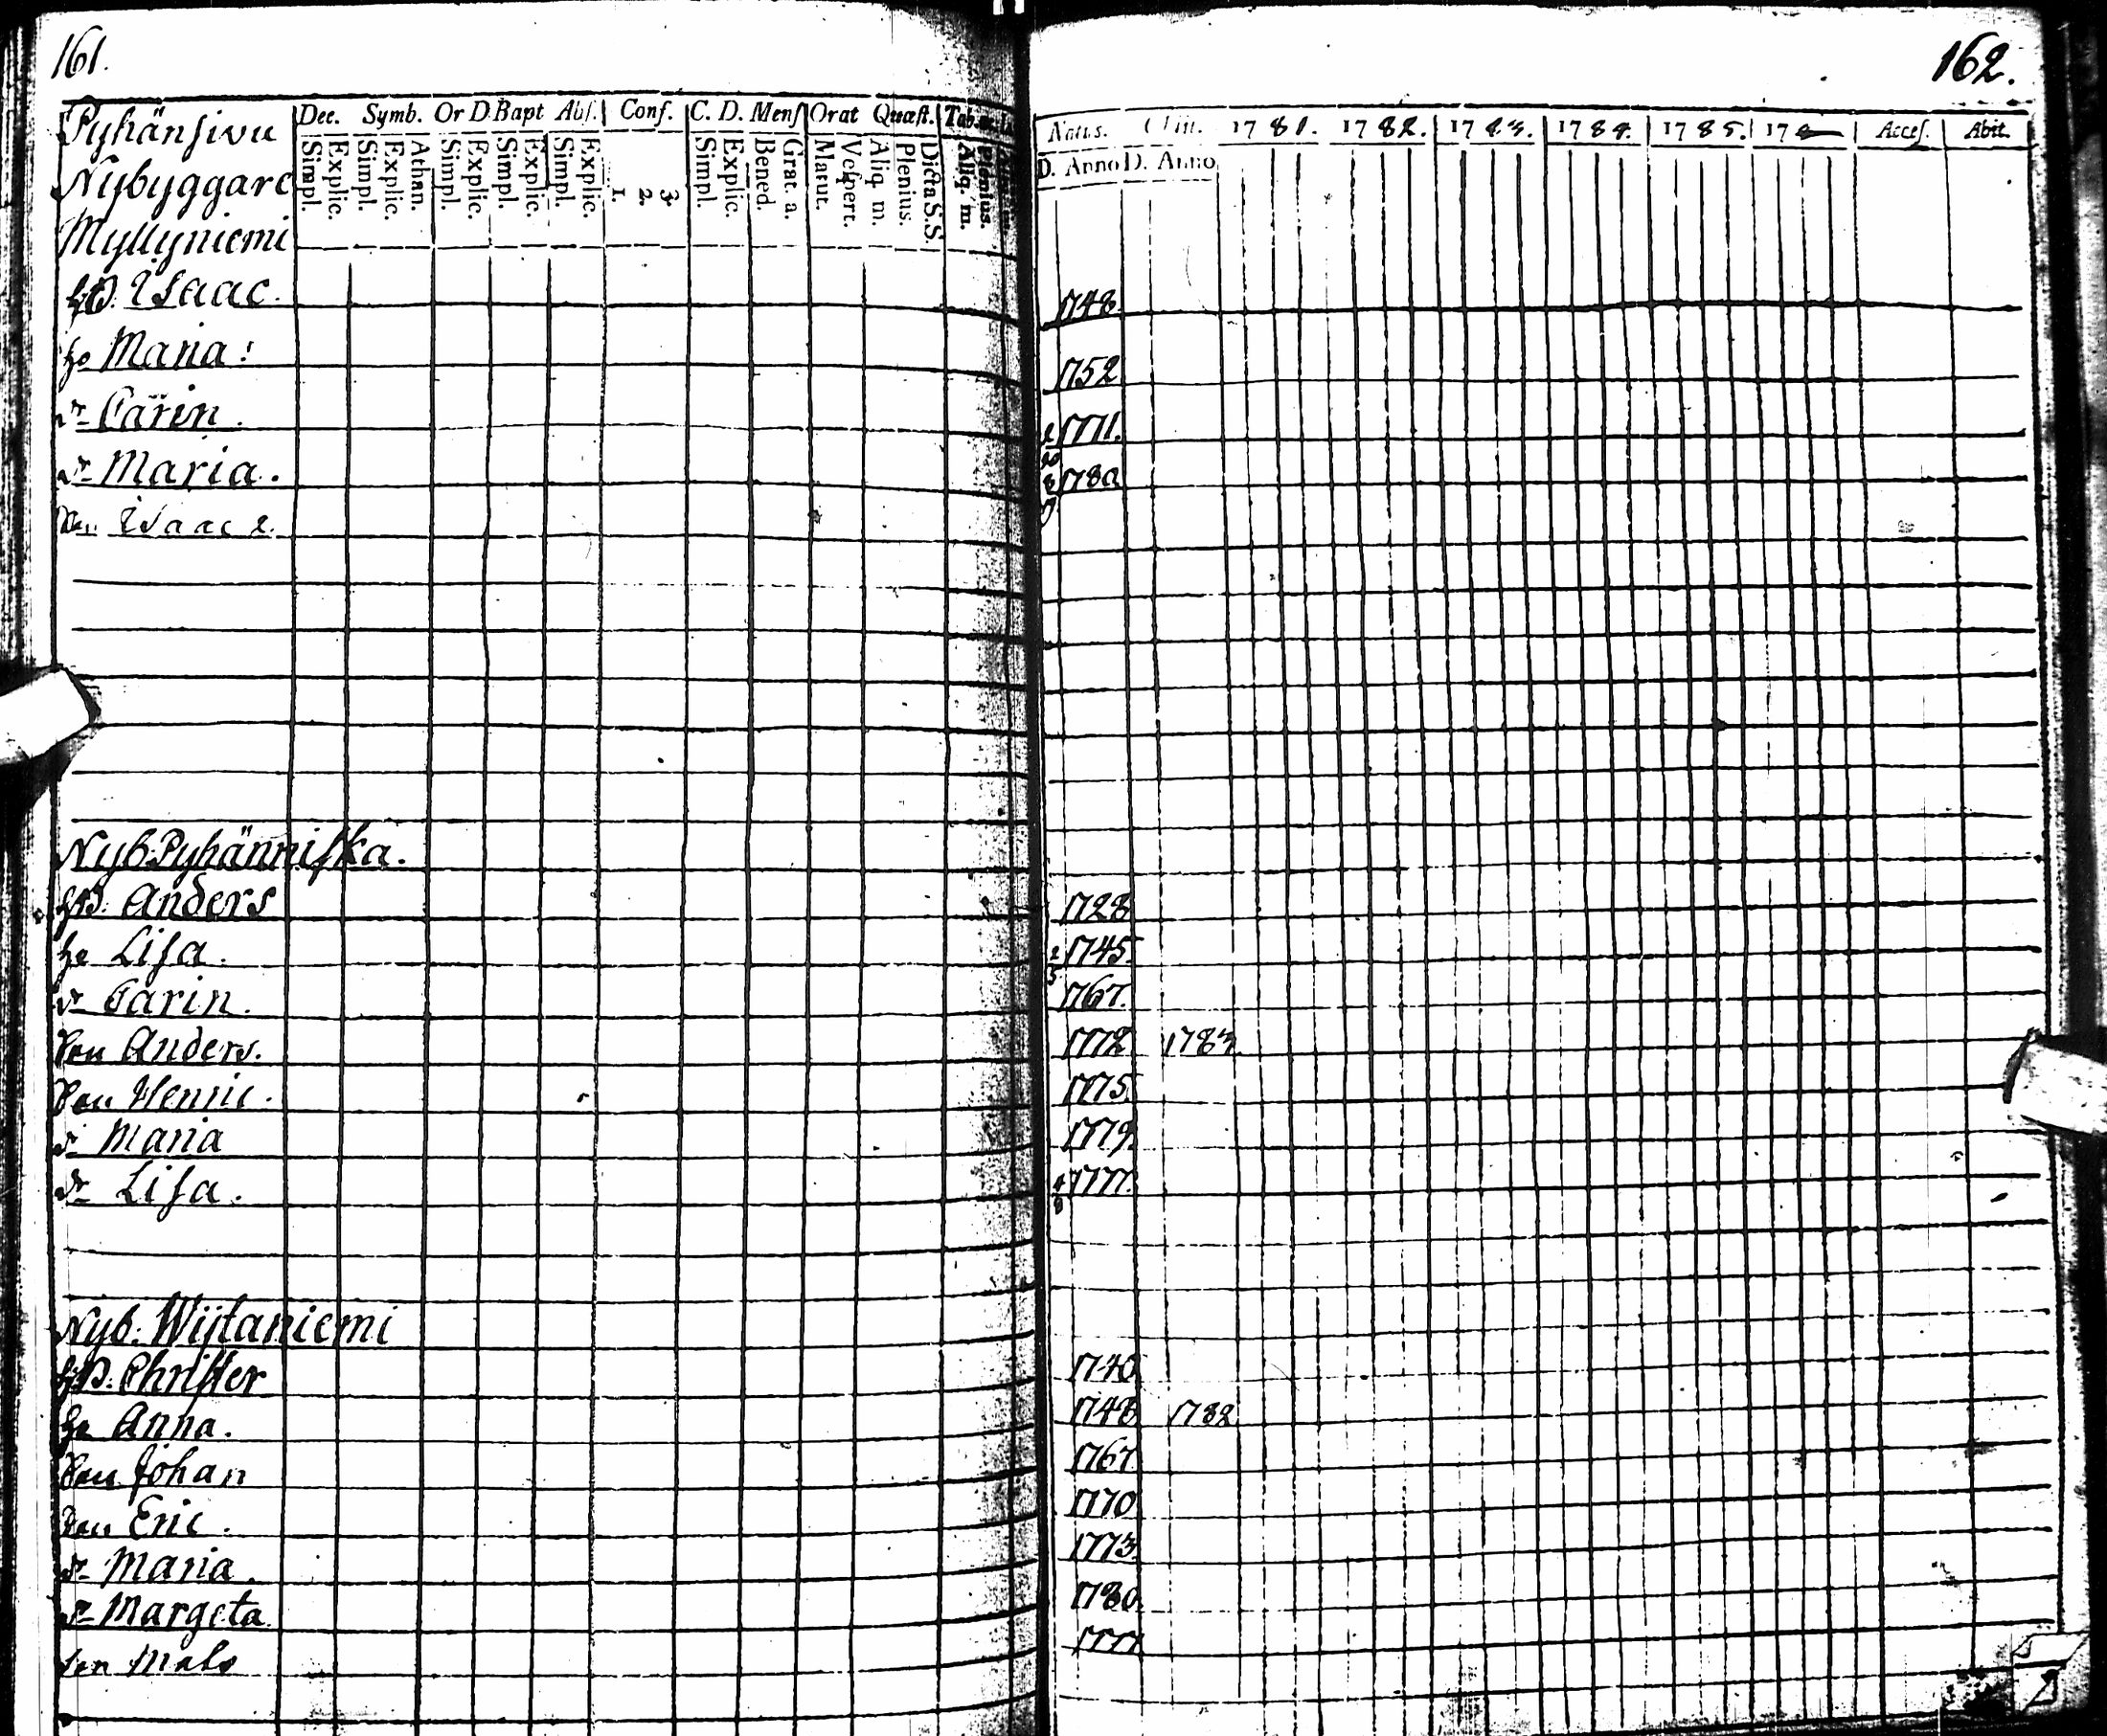 161.
Pyhänsivu
Nybyggare
Myllyniemi
Dec. Symb. Or D. Bapt Abſ. Conf. C. D. Menſ Orat Quæſt. Tab.
Simpl. Explic. Simpl. Explic. Athan. Simpl. Explic. Simpl. Explic. Simpl. Explic. 1. 2. 3. Simpl. Explic. Bened. Grat. a. Matut. Veſpert. Aliq. m. Plenius. Dicta S.S. Aliq. m. Plenius.
Isaac.
Maria.
dr Carin.
dr Maria.
Isaac 2.
Nyb: Pyhänniſka.
Anders
Liſa.
dr Carin.
Son Anders.
Son Henric.
dr Maria
dr Liſa.
Nyb: Wijtaniemi
Chriſter
Anna.
Son Johan
Son Eric.
dr Maria.
dr Margeta
Son Mats
162.
Natus. 1781. 1782. 1783. 1784. 1785. 178 Acceſ. Abit.
D. Anno D. Anno
1748
1752
1771.
1780
1728
2/5 1745
1767.
1772 1783
1775.
1779.
4/8 1777.
1740
1748 1782
1767
1770
1773.
1780.
1777